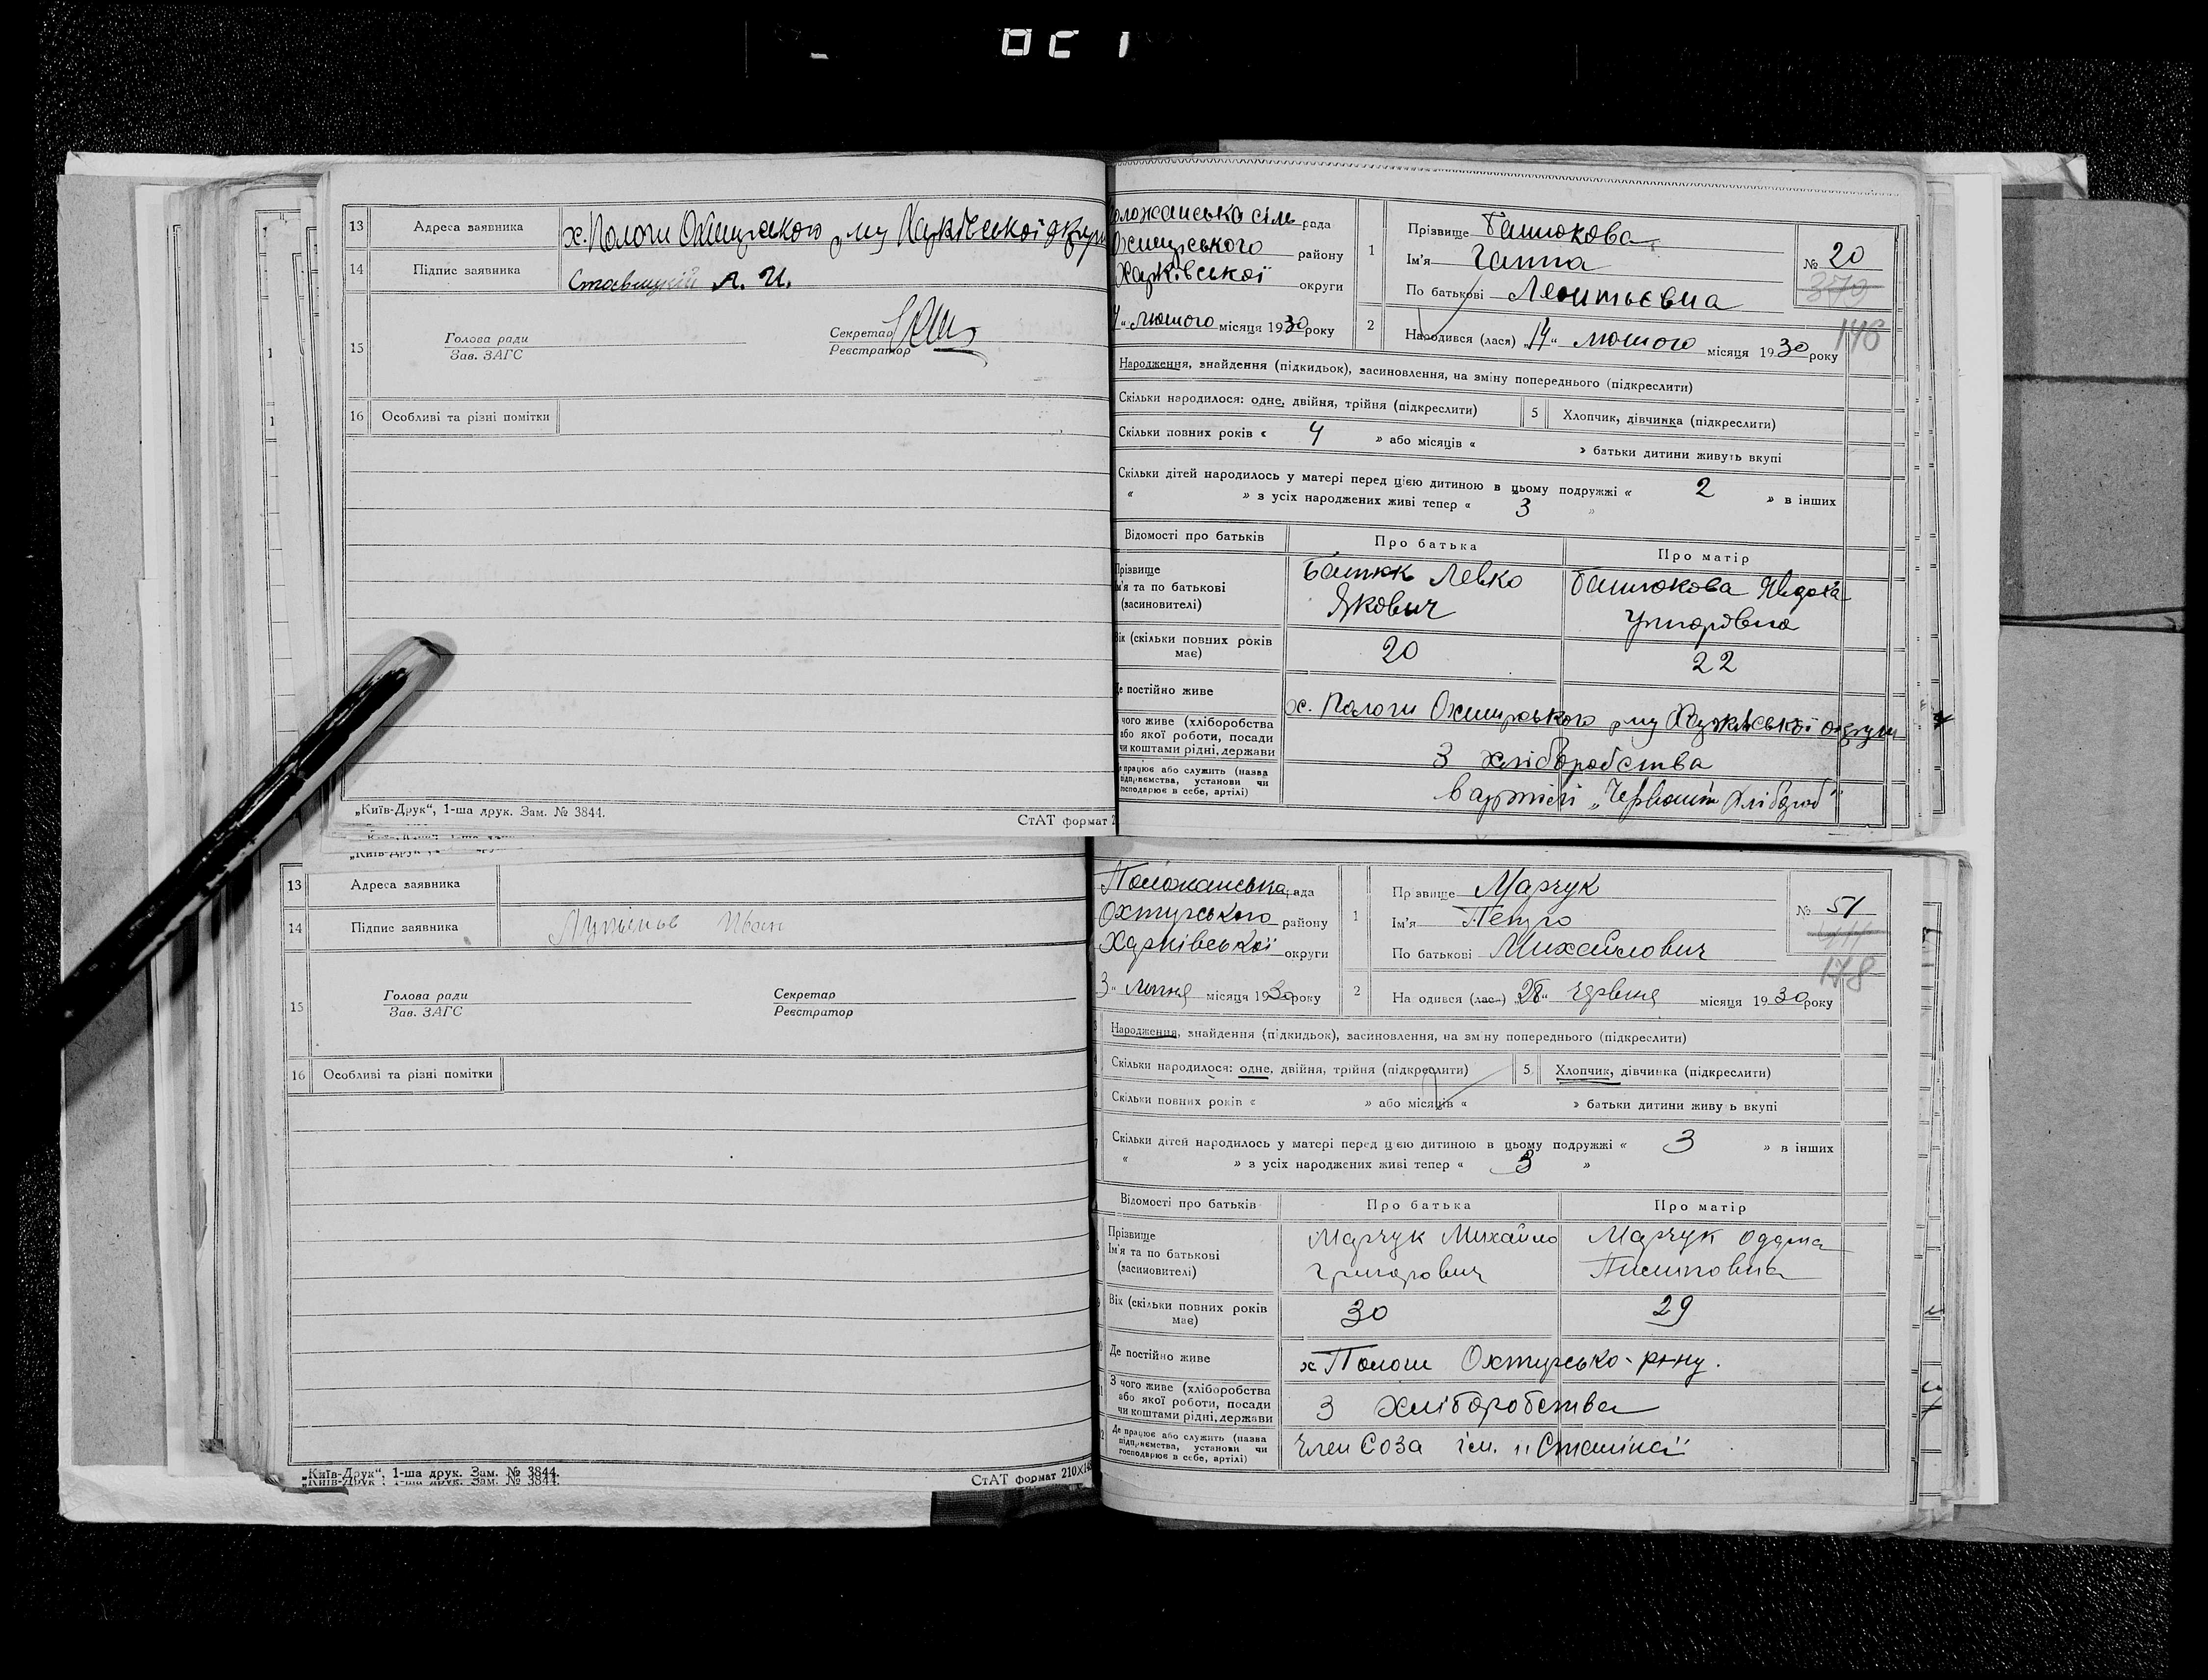 13 Адреса заявника х. Пологи Охтирського р-ну Харківської округи
14 Підпис заявника Ставицкій А. И.
15 Голова ради Секретар
Зав. ЗАГС Реєстратор
16 Особливі та різні помітки
„Київ-Друк“, 1-ша друк. Зам. № 3844.
СтАТ формат 2
оложанська сіль рада
Охтирського району
Харківської округи
" люмого місяця 1930 року
1 Прізвище Батюкова
Ім'я Ганна
По батькові Леонтьєвна
№ 20
370
146
2 Народився (лася) „14“ лютого місяця 1930 року
Народження, знайдення (підкидьок), засиновлення, на зміну попереднього (підкреслити)
Скільки народилося: одне, двійня, трійня (підкреслити) 5 Хлопчик, дівчинка (підкреслити)
Скільки повних років « 4 » або місяців « » батьки дитини живуть вкупі
Скільки дітей народилось у матері перед цією дитиною в цьому подружжі « 2 » в інших
« » з усіх народжених живі тепер « 3 »
Відомості про батьків Про батька Про матір
Прізвище Батюк Левко Батюкова Явдоха
м'я та по батькові Якович Григорівна
(засиновителі)
Вік (скільки повних років 20 22
має)
Де постійно живе х. Пологи Охтирського р-ну Харківської округи
чого живе (хліборобства З хліборобства
або якої роботи, посади
чи коштами рідні, держави
працює або служить (назва в артілі „Червоний Хлібороб“
підприємства, установи чи
господарює в себе, артілі)
13 Адреса заявника
14 Підпис заявника Иван
15 Голова ради Секретар
Зав. ЗАГС Реєстратор
16 Особливі та різні помітки
„Київ-Друк“, 1-ша друк. Зам. № 3844.
„Київ-Друк“, 1-ша друк. Зам. № 3844.
СтАТ формат 210×1
Положанська рада
Охтирського району
Харківської округи
3" липня місяця 1930 року
1 Пр звище Марчук
Ім'я Петро
По батькові Михайлович
№ 51
178
2 На одився (лася) „28“ червня місяця 1930 року
Народження, знайдення (підкидьок), засиновлення, на зміну попереднього (підкреслити)
Скільки народилося: одне, двійня, трійня (підкреслити) 5 Хлопчик, дівчинка (підкреслити)
Скільки повних років « » або місяців « » батьки дитини живу ь вкупі
Скільки дітей народилось у матері перед цією дитиною в цьому подружжі « 3 » в інших
« » з усіх народжених живі тепер « 3 »
Відомості про батьків Про батька Про матір
Прізвище Марчук Михайло Марчук Одарка
Ім'я та по батькові Григорович
(засиновителі)
Вік (скільки повних років 30 29
має)
Де постійно живе х Пологи Охтирсько-р-ну.
З чого живе (хліборобства З хліборобства
або якої роботи, посади
чи коштами рідні, держави
Де працює або служить (назва Член Соза ім. „Сталіна“
підприємства, установи чи
господарює в себе, артілі)